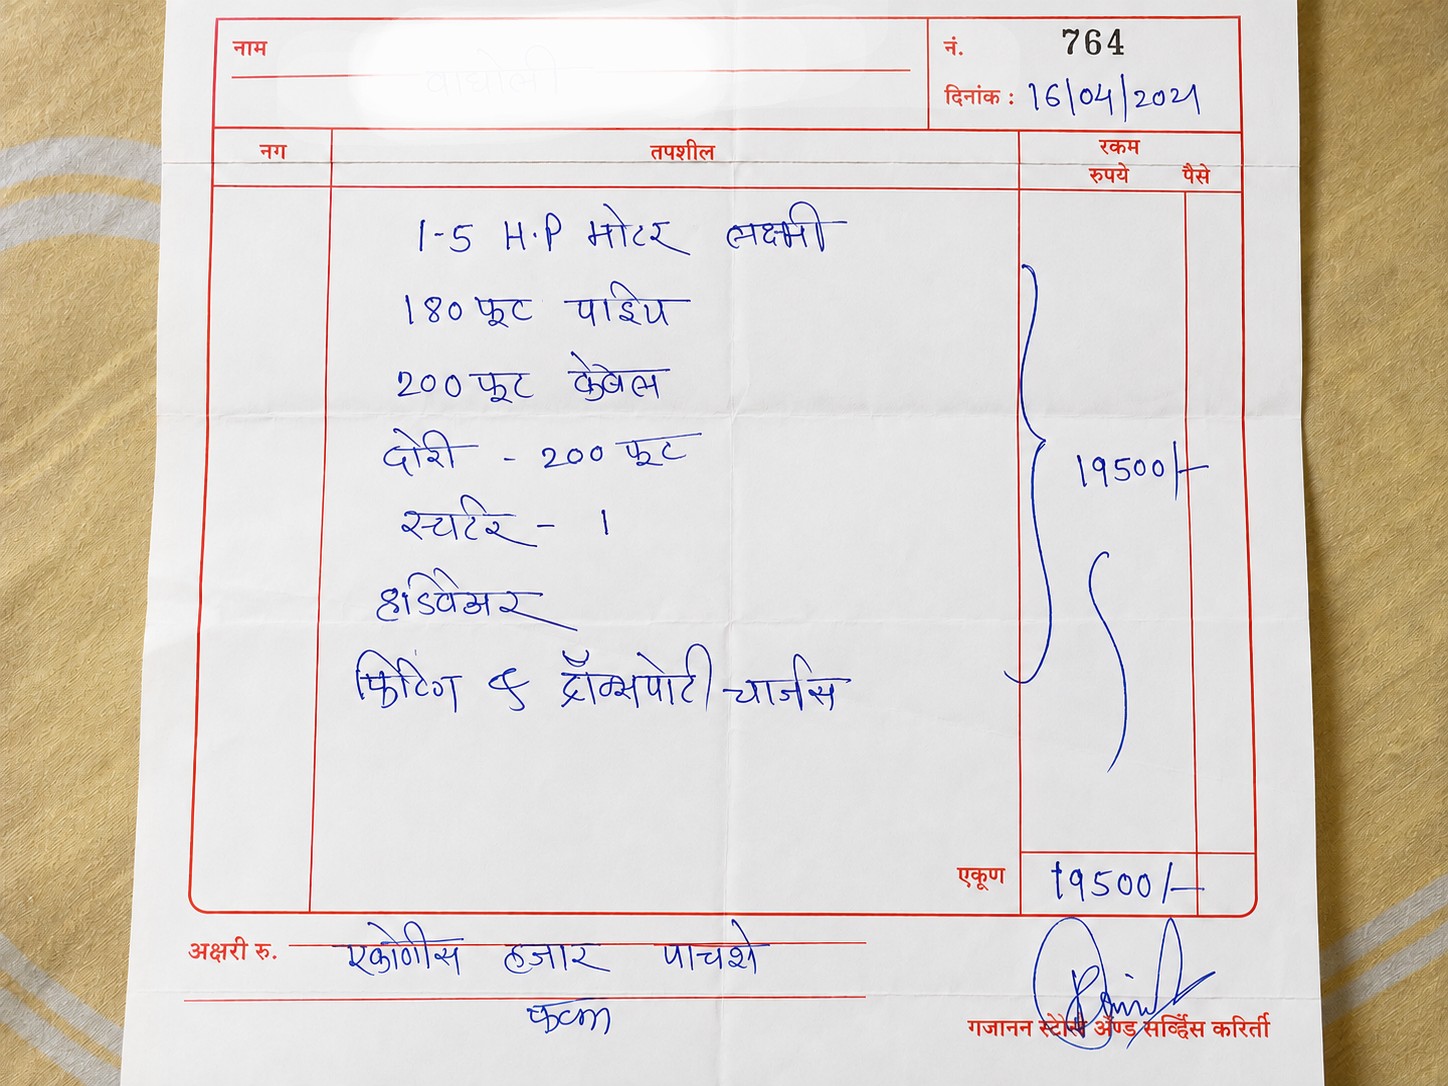 नाम
नं. 764
दिनांक : 16/04/2021
नग तपशील रकम
रुपये पैसे
1-5 H.P मोटर लक्ष्मी
180 फूट पाईप
200 फूट केबल
दोरी - 200 फूट
19500/-
स्टार्टर - 1
हार्डवेअर
फिटिंग & ट्रॅान्सपोर्टी चार्जस
एकूण 19500/-
अक्षरी रु. एकोणीस हजार पाचशे
फक्त
गजानन स्टोअर्स ॲण्ड सर्व्हिस करिर्ता